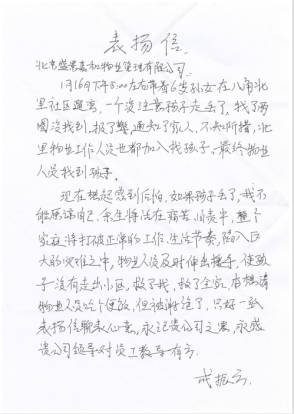 表扬信
北京盛景嘉和物业管理有限公司：
1月16日下午5:00左右带着6岁孙女在八角北
里社区遛弯，一个没注意孩子走丢了，找了两
圈没找到，报了警通知了家人，不知所措，北
里物业工作人员也都加入找孩子，最终物业
人员找到孩子。
现在想起感到后怕，如果孩子丢了，我不
能原谅自己，余生将活在痛苦自责中，整个
家庭将打破正常的工作、生活节奏，陷入巨
大的灾难之中，物业人员及时伸出援手，使孩
子没有走出小区，救了我，救了全家，想请
物业人员吃个便饭，但被谢绝了，只好一纸
表扬信聊表心意，永记贵公司之恩，永感
贵公司领导对员工教导有方。
成振云